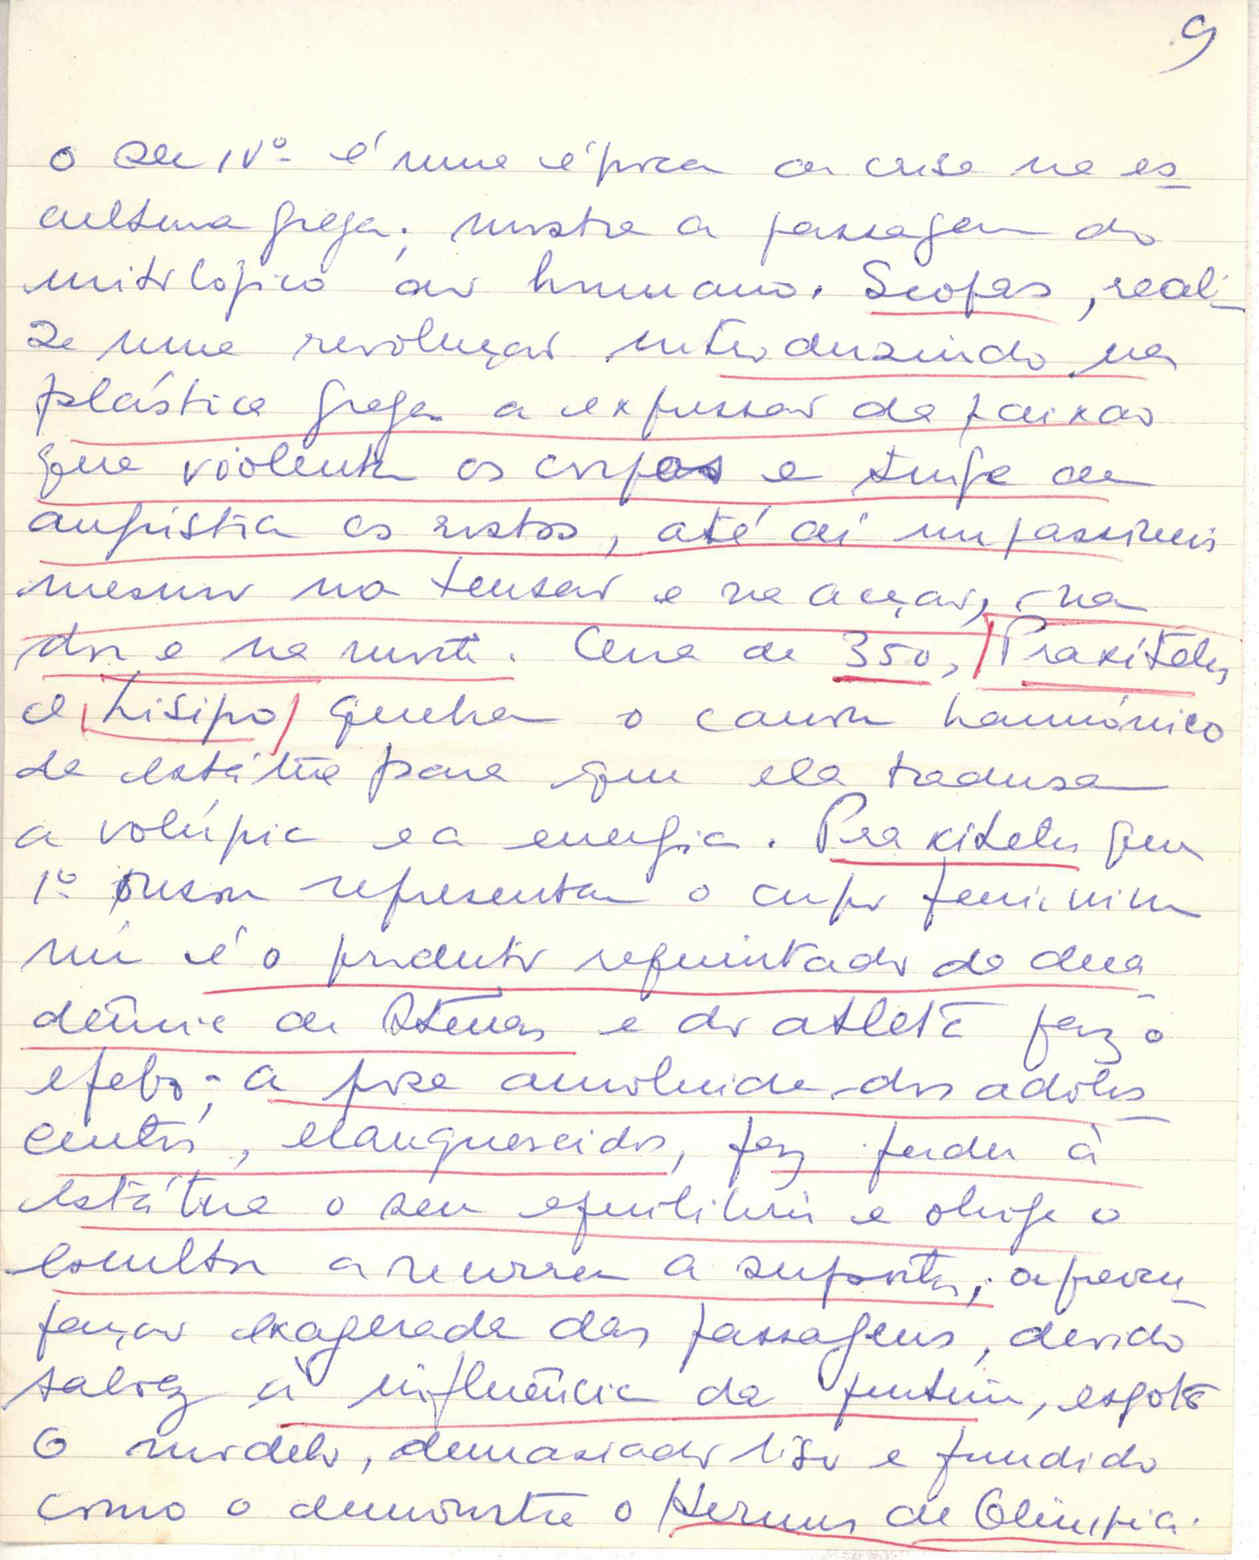 9
O Sec IVº é uma época de crise na es
cultura grega; mostra a passagem do
mitológico ao humano. Scopas, reali
za uma revolução introduzindo na
plástica grega a expressão da paixão
que violenta os corpos e tinge de
angústia os rostos, até aí impassíveis
mesmo na tensão e na acção, na
dor e na morte. Cerca de 350, Praxíteles
e Lisipo quebram o canon harmónico
da estátua para que ela traduza
a volúpia e a energia. Praxiteles que
1º ousou representar o corpo feminino
nú é o produto requintado da deca
dência de Atenas e do atleta faz o
efebo; a pose amolecida dos adoles
centes, elanguescidos, faz perder à
estátua o seu equilíbrio e obriga o
escultor a recorrer a suportes; a perfei
ção exagerada das passagens, devido
talvez à influência da pintura, esgota
o modelo, demasiado liso e fundido
como o demonstra o Hermes de Olimpia.